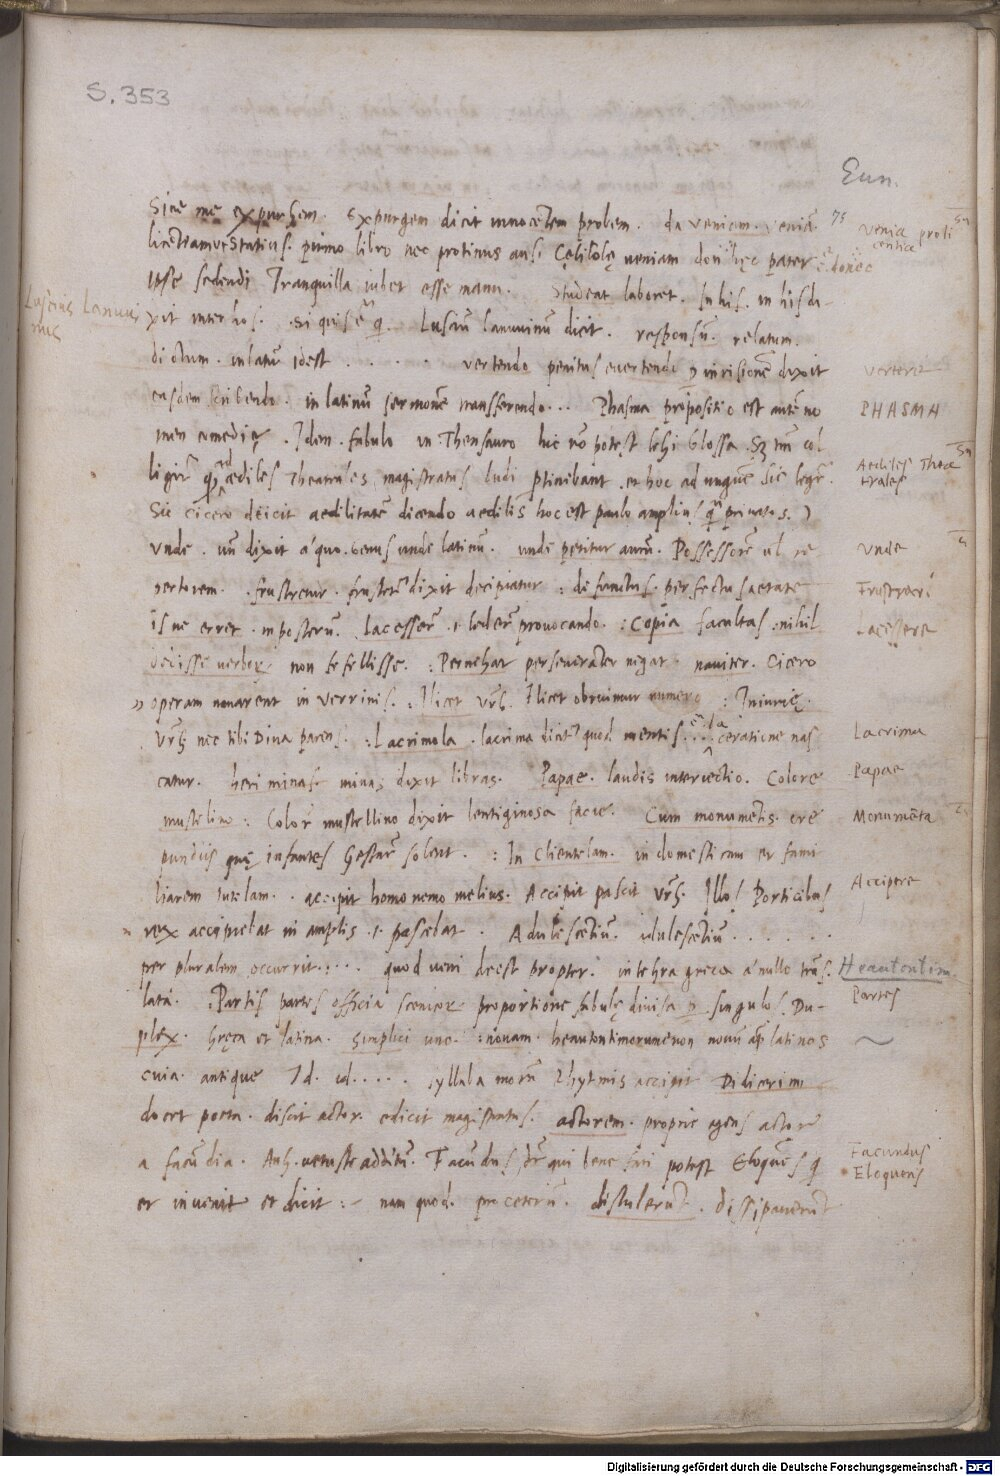 S. 353
Eun.
Sine me expurgem. Expurgem dicit innocētem probem. da veniam. veniā 75
licētiam ut Statius. primo libro nec protinus ausi Cęlicolę veniam donec pater
Ipse sedendi Tranquilla iubet esse manu. Studeat laboret. In his. in his di-
xit inter hos. Si quis ē q. Lusciū lanuuinū dicit. responsū. relatum.
dictum. inlatū idest . . . . vertendo penitus euertendo inrisionē dixit
easdem scribendo. in latinū sermonē transferendo. . . Phasma propositio est autē no
men comedię. Idem. fabula in Thensauro hic nō potest Glossa. col
ligit aediles Theatrales magistratus ludi ptinebant. et hoc ad unguē sic
Sic cicero deicit aedilitatē dicendo aedilis hoc est paulo amplius privatos.
Vnde. dixit a quo. genus unde latinū. unde petitur aurū. Possessorē re
pertorem. frustretur. dixit decipiatur : defunctus. perfectus aetate
is ne erret. in posterū. lacesserē .i. ledere provocando. : Copia facultas : nihil
dedisse verbor. non fefellisse. : Pernegat perseuerāter negat. nauiter. Cicero
operam nauarent in Verrinis. : Ilicet Ilicet obruimur numero : Iniurię.
nec tibi Diva parens. : Lacrimula. lacrima dicitur quod mentis laceratione nas
catur. heri minas. minas dixit libras. Papae. laudis interiectio. Colore
mustelino : Color mustellino dixit lentiginosa facie. Cum monumētis. cre
pundiis quę infantes Gestare solent. : In Clientelam. in domesticam et fami
liarem tutelam. . accipit homo nemo melius. Accipit pascit Illos Porticibus
rex accipiebat in amplis .i. pascebat. Adulescētium. adulescētiū . . . . . .
per pluralem occurrit. : . . . quod ueni deest propter. integra greca a nullo trās
lata. : Partis partes officia scenicor. proportione fabulę divisa singulos. Du-
plex. Gręca et latina. simplici uno. : nouam. heautontimorumenon nouū ap latinos
cuia. antique Id. id. . . . . syllaba Rhytmis accipit Didicerim
docet poeta. discit actor. edicit magistratus. actorem. proprie agens actore
a facūdia. Anh. vetuste additū. Facūdus qui bene fari potest Eloquēs q
et invenit et dicit : nam quod. preceteriū. distulerūt. dissipauerūt
Luscius Lanuui
nus
Venia proli
centia
donec
vertere
PHASMA
Aediles Thea
trales
Vnde
Frustrari
Lacessere
Lacrima
Papae
Monumēta
Accipere
Heautontim.
Partes
Facundus
Eloquens
Digitalisierung gefördert durch die Deutsche Forschungsgemeinschaft - DFG